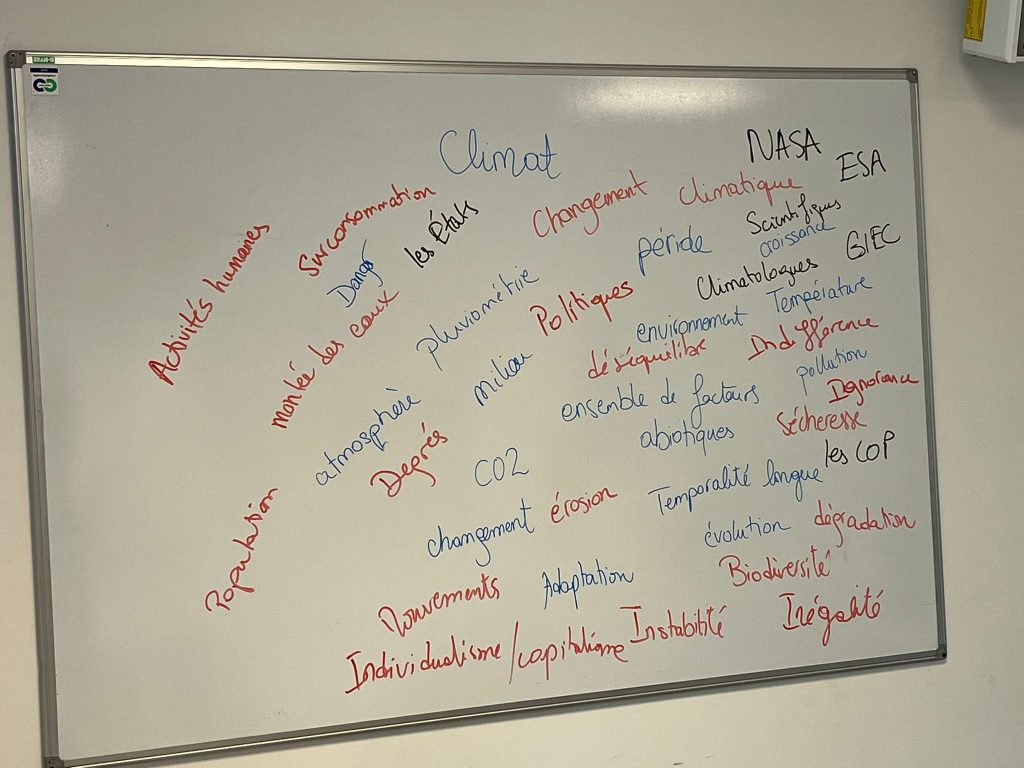 Climat
NASA
ESA
Surconsommation
les États
Changement climatique
Scientifiques
croissance
GIEC
Activités humaines
Danger
péride
Climatologues
Température
montée des eaux
pluviométrie
Politiques
environnement
Indifférence
déséquilibre
pollution
milieu
ensemble de facteurs
abiotiques
Ignorance
Sécheresse
atmosphère
Degrés
CO2
les COP
Temporalité longue
Population
changement
érosion
évolution
dégradation
Mouvements
Adaptation
Biodiversité
Individualisme / capitalisme
Instabilité
Inégalité